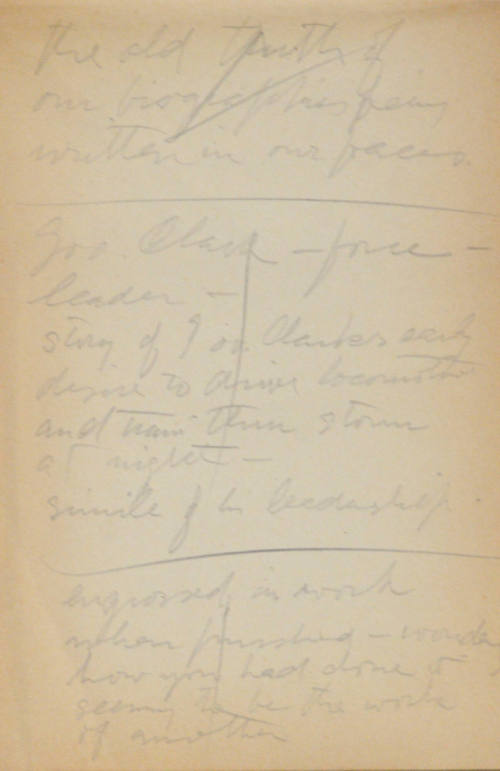 the old truth of
our biographies being
written in our faces.
Gov. Clark – force –
leader –
story of Gov. Clark's early
desire to drive locomotive
and train thru storm
at night –
simile of his leadership.
engrossed in work
when finished – wonder
how you had done it
seeming to be the work
of another